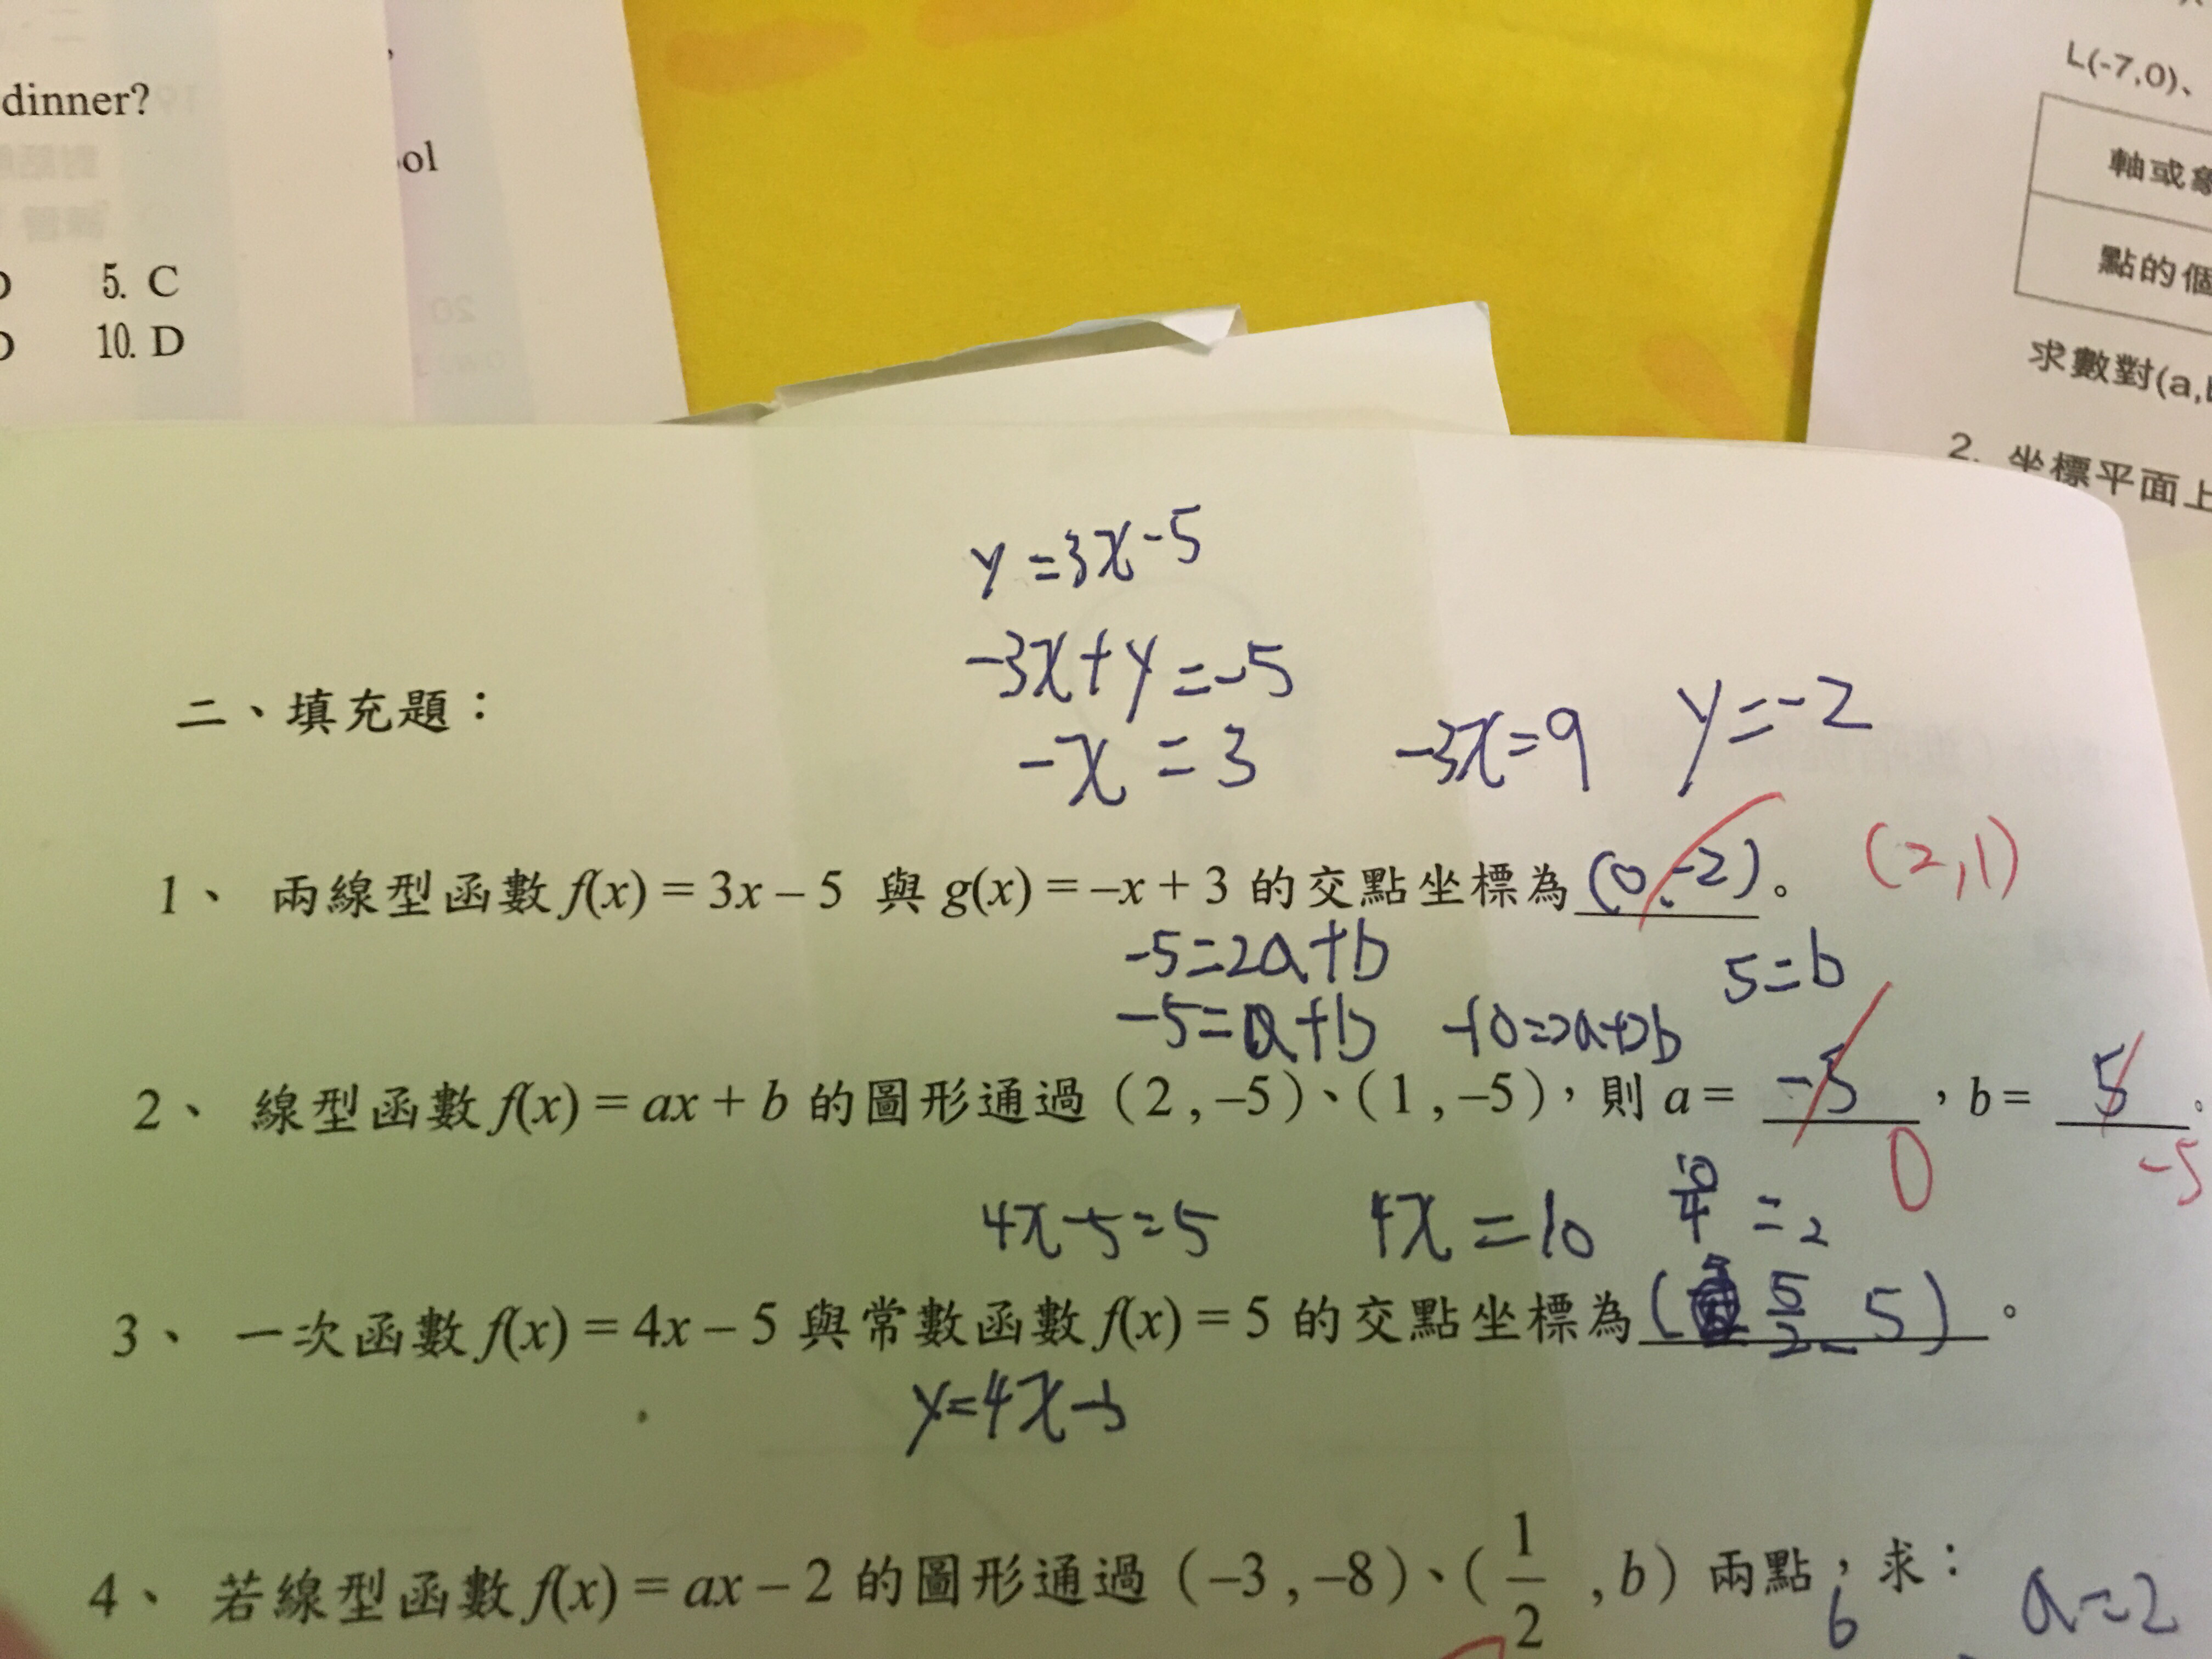 dinner?
ol
5. C
10. D
L(-7,0)、
軸或象
點的個
求數對(a,b
2. 坐標平面上
y=3x-5
-3x+y=-5
-x=3 -3x=9 y=-2
二、填充題：
1、 兩線型函數 f(x) = 3x – 5 與 g(x) = –x + 3 的交點坐標為(0,-2)。 (2,1)
-5=2a+b 5=b
-5=a+b -10=2a+2b
2、 線型函數 f(x) = ax + b 的圖形通過（2 , –5）、（1 , –5），則 a = -5 ，b = 5 。
0 -5
4x-5=5 4x=10 10/4=2
3、 一次函數 f(x) = 4x – 5 與常數函數 f(x) = 5 的交點坐標為( 5/2 5)。
y=4x-5
4、 若線型函數 f(x) = ax – 2 的圖形通過（–3 , –8）、（1/2 , b）兩點，求：
6 a=2